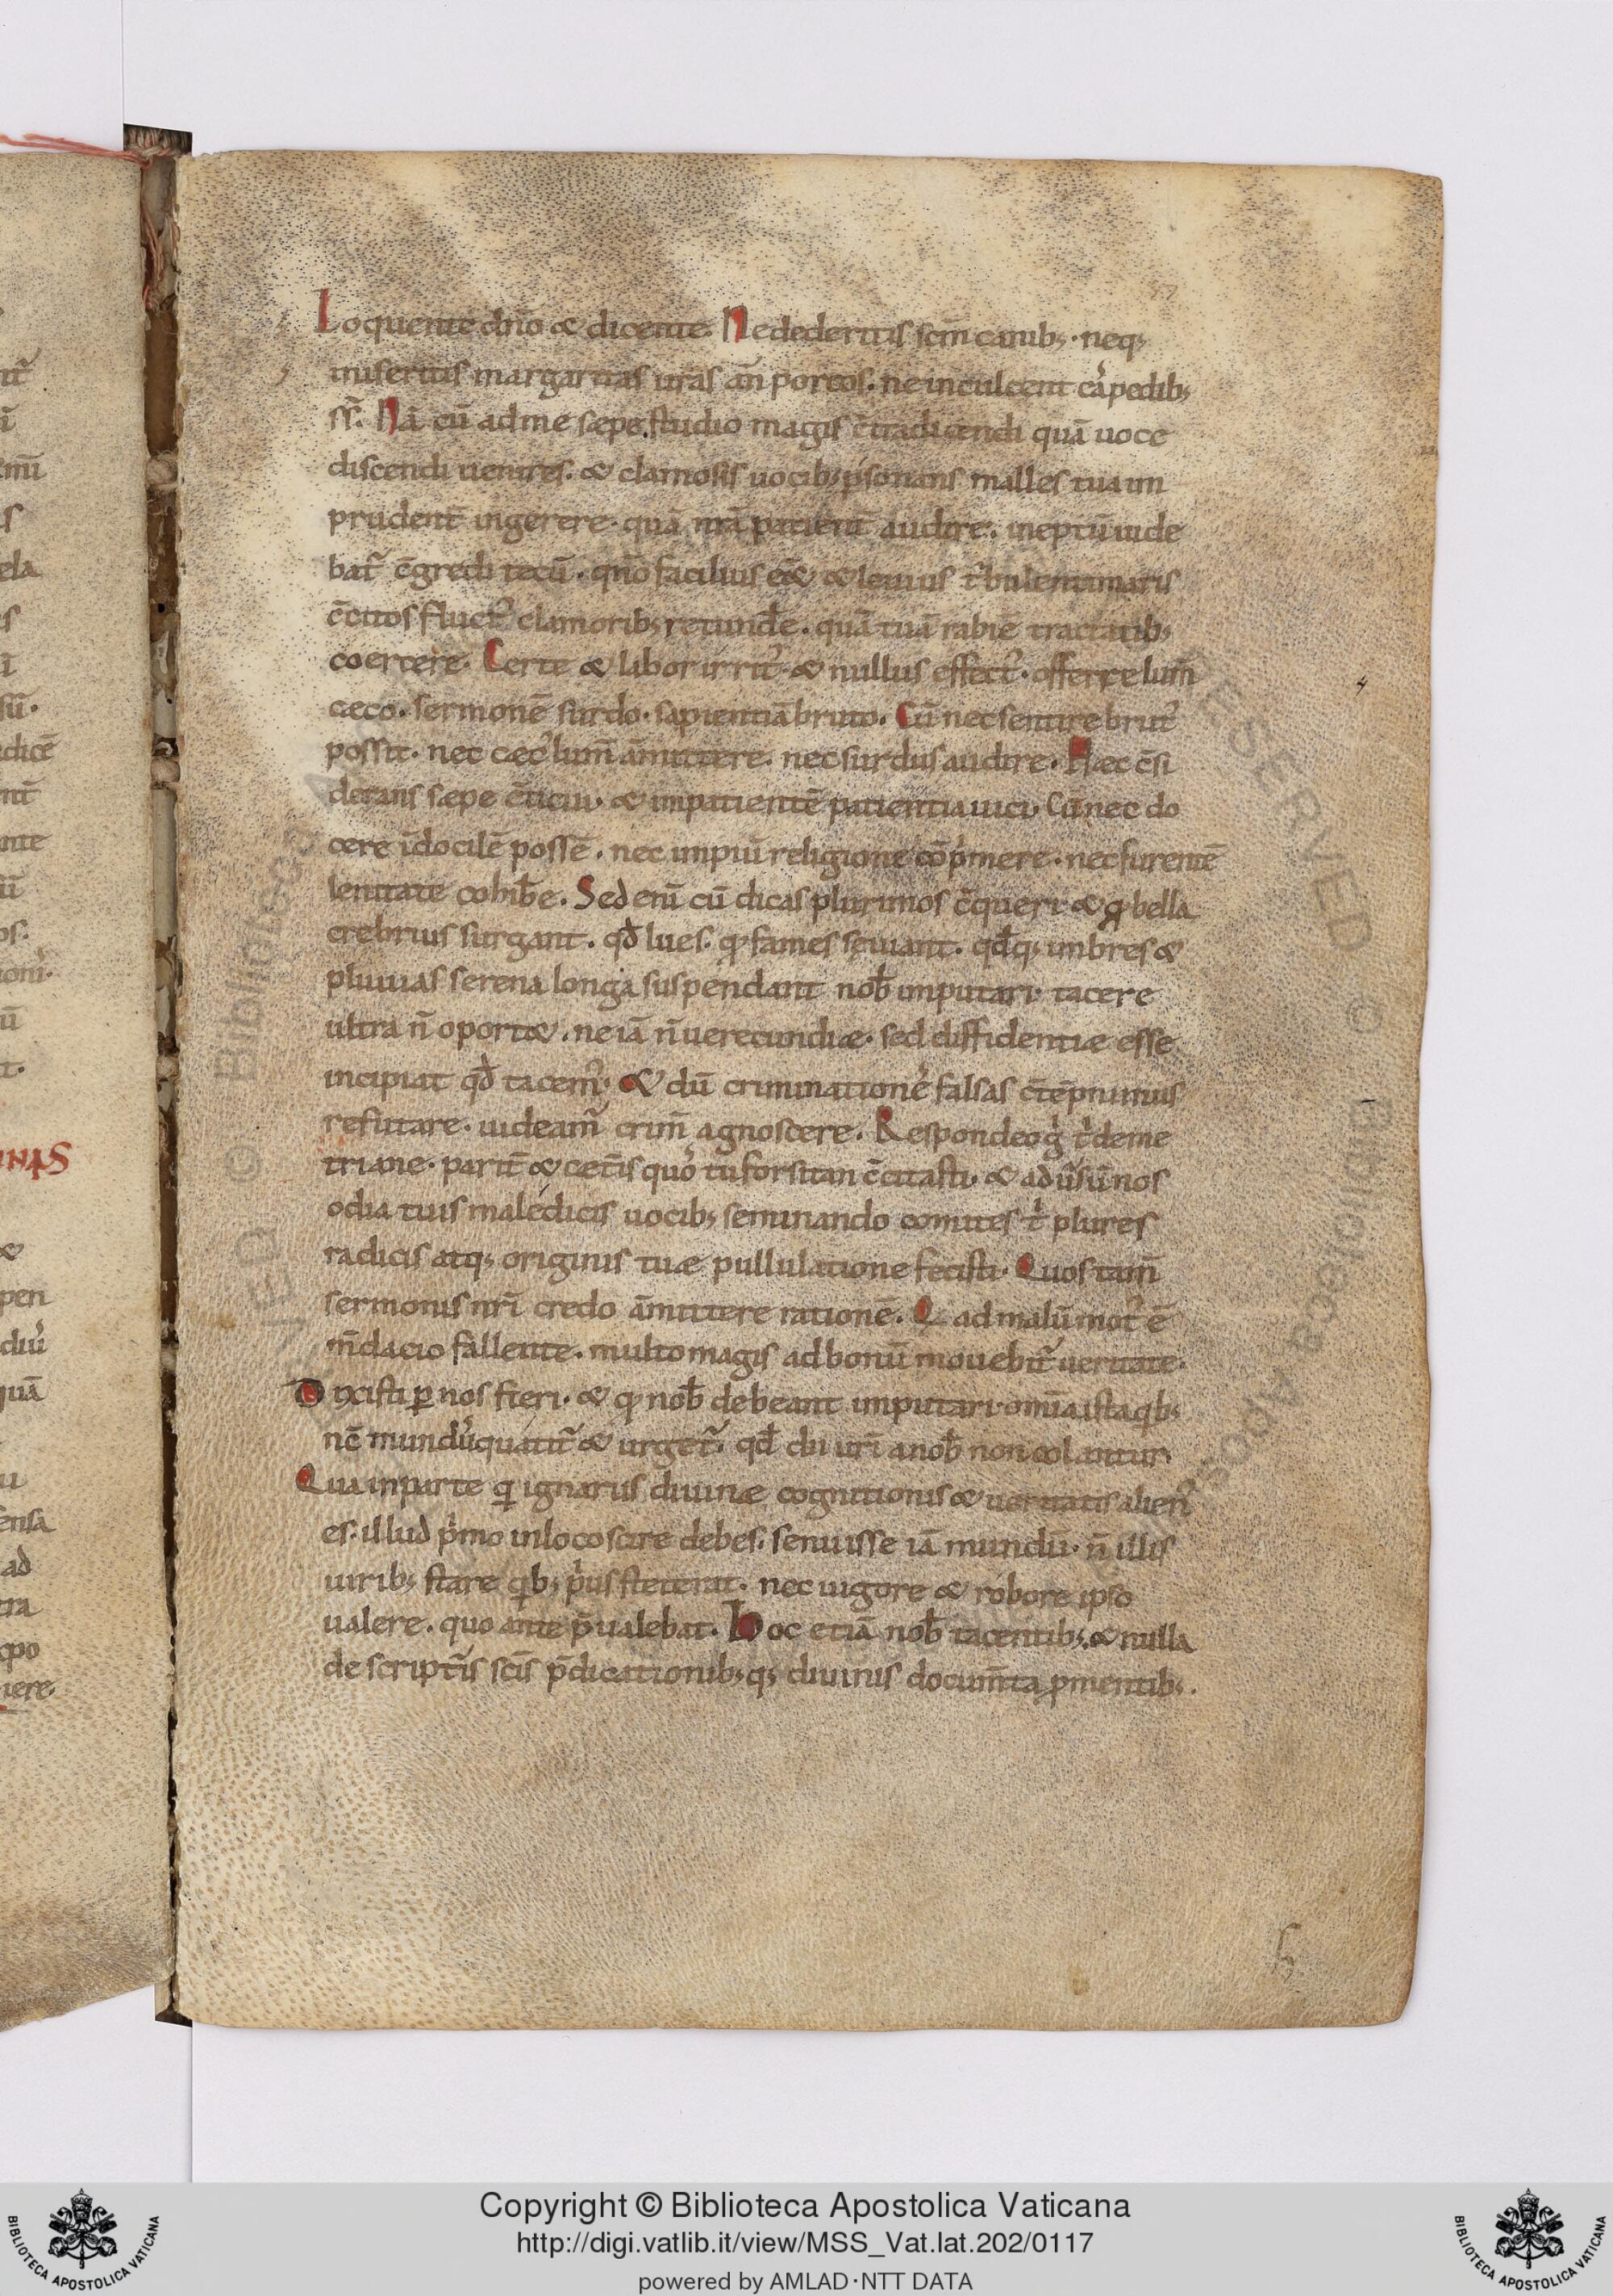 Loquente dn̄o & dicente. Ne dederitis scm̄ canib; · neq;
miseritis margaritas ur̄as an̄ porcos. ne inculcent eaˢ pedib;
ss̄. Nā cū ad me sæpe studio magis c̄tradicendi quā uoce
discendi uenires. & clamosis uocib; p̱sonans malles tua im
prudent̄ ingerere· quā nr̄a patient̄ audire. ineptū uide
bat᷑ c̄gredi tecū· qn̄o facilius eēt & leuius t᷑bulenti maris
c̄citos fluct᷒ clamorib; retund̄e. quā tuā rabiē tractatib;
coercere. Certe & labor irrit᷒ & nullus effect᷒· offerre lum̄
cæco· sermonē surdo· sapientiā bruto. Cū nec sentire brut᷒
possit· nec cæc᷒ lum̄ ām̄ittere. nec surdus audire. Hæc c̄si
derans sæpe c̄ticui· & impatientē patientia uici· Cū nec do
cere īdocilē possē· nec impiū religione cōp̄mere· nec furentē
lenitate cohib̄e. Sed eni᷑ cū dicas plurimos c̄queri & ꝙ bella
crebrius surgant. qd̄ lues· ꝙ fames sęuiant. qd̄q; imbres &
pluuias serena longa suspendant nob̄ imputari· tacere
ultra n̄ oport&. ne iā n̄ uerecundiæ· sed diffidentiæ esse
incipiat qd̄ tacem᷒. & dū criminatione᷒ falsas c̄tēpnimus
refutare· uideam᷑ crim̄ agnoscere. Respondeo g̊ t̊ deme
triane· parit̄ & cet̄is quo᷒ tu forsitan c̄citasti· & adu᷑sū nos
odia tuis maledicis uocib; seminando comites t̊ plures
radicis atq; originis tuæ pullulatione fecisti. Quos tam̄
sermonis nr̄i credo ām̄ittere rationē. Q̄ ad malū mot᷒ ē
m̄dacio fallente. multo magis ad bonū mouebit᷑ ueritate.
Dixisti ꝑ nos fieri· & ꝙ nob̄ debeant imputari omia ista qib;
nc̄ mund᷒ quatit᷑ & urget᷑. qd̄ dii ur̄i a nob̄ non colantur.
Qua in parte qi ignarus diuinæ cognitionis & ueritatis alien᷒
es. illud p̊mo in loco scire debes. senuisse iā mundū· n̄ illis
uirib; stare qib; p̊us steterat. nec uigore & robore ipso
ualere. quo ante p̄ualebat. Hoc etiā nob̄ tacentib; & nulla
de scriptu᷑is scīs p̄dicationib;q; diuinis docum̄ta ꝓmentib;.
Copyright © Biblioteca Apostolica Vaticana
http://digi.vatlib.it/view/MSS_Vat.lat.202/0117
powered by AMLAD·NTT DATA